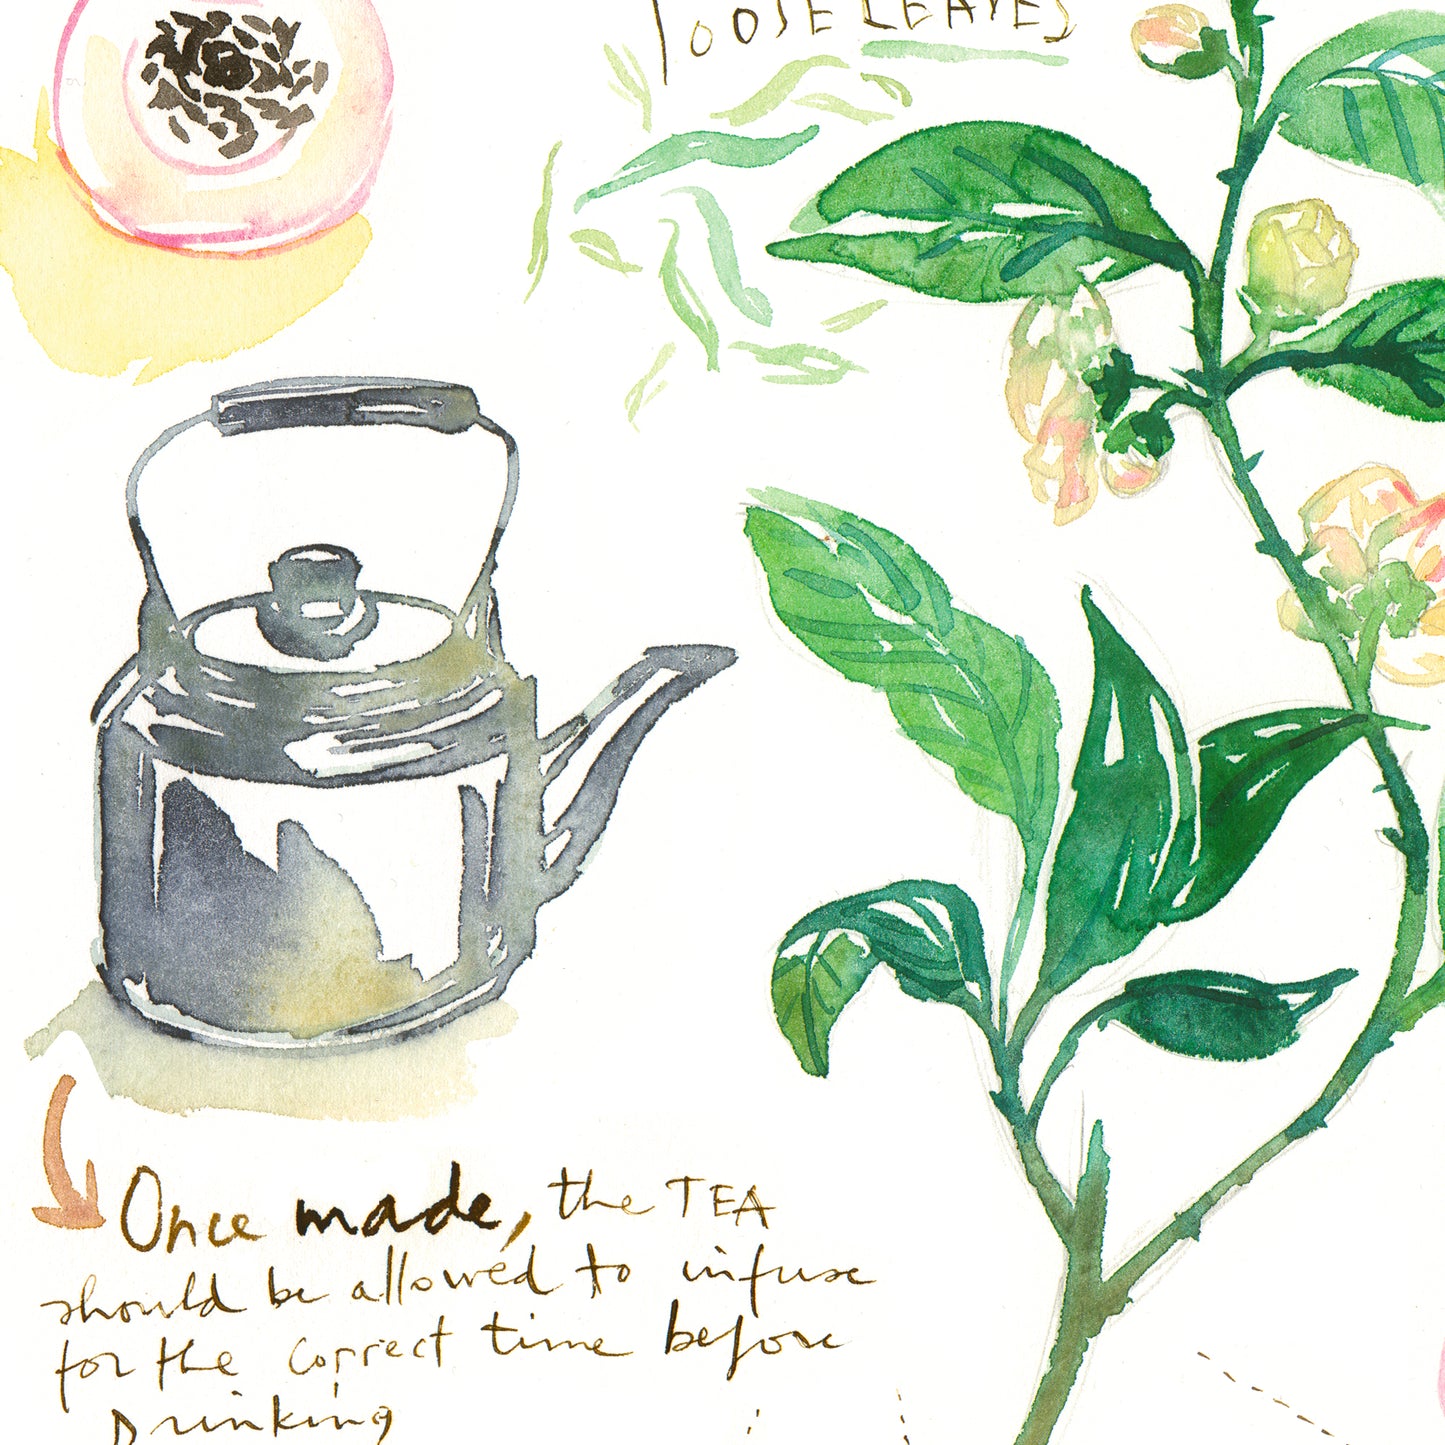 LOOSE LEAVES
Once made, the TEA
should be allowed to infuse
for the correct time before
Drinking